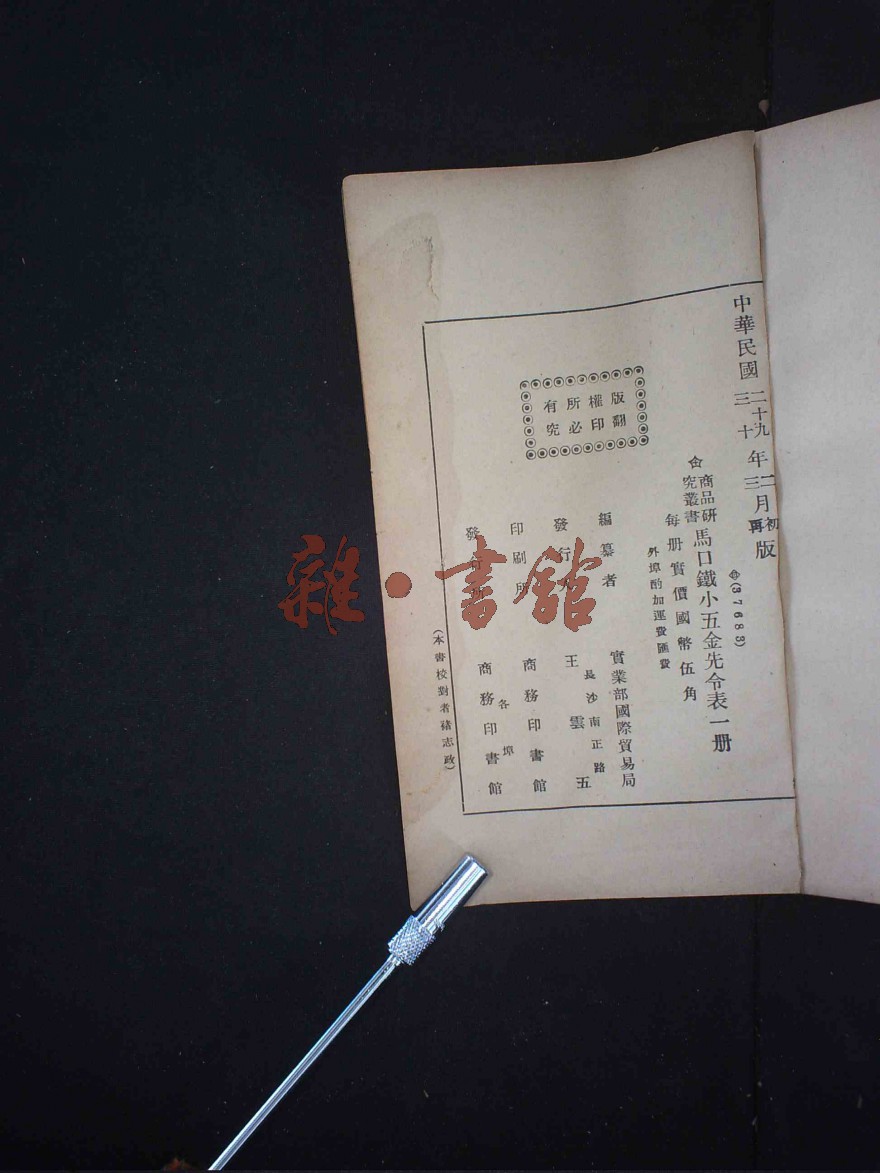 中華民國二十九年二月初版
三十 三 再
(37683)
商品研究叢書 馬口鐵小五金先令表一册
每册實價國幣伍角
外埠酌加運費匯費
版權所有
翻印必究
編纂者 實業部國際貿易局
長沙南正路
發行人 王雲五
印刷所 商務印書館
各埠
發行所 商務印書館
(本書校對者 志政)
雜·書館